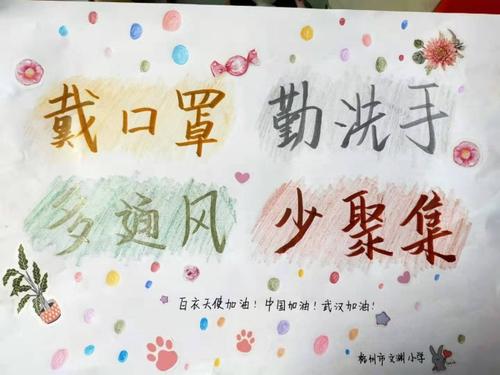 戴口罩 勤洗手
多通风 少聚集
百衣天使加油！中国加油！武汉加油！
郴州市文渊小学